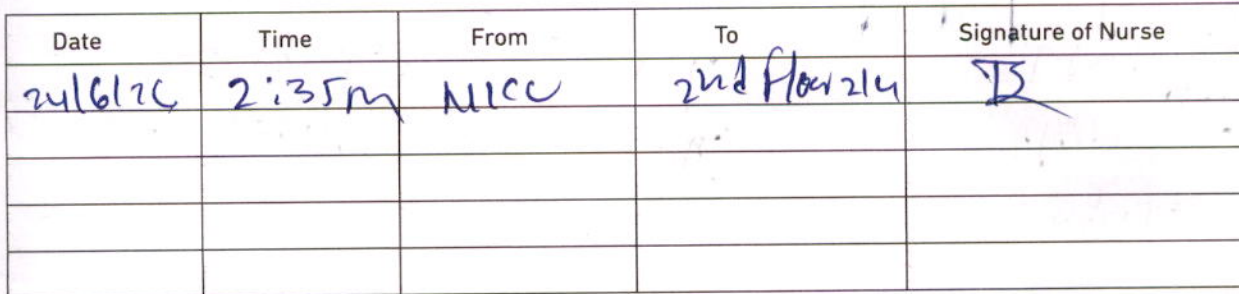 Date Time From To Signature of Nurse
24/6/26 2:35pm NICU 2nd floor 214